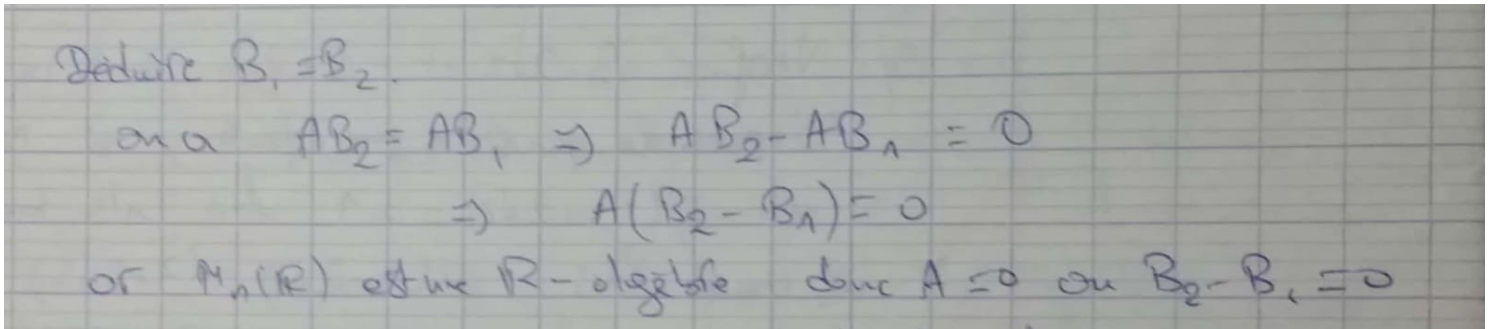 Deduire B₁ = B₂.
on a AB₂ = AB₁ ⇒ AB₂ - AB₁ = 0
⇒ A(B₂ - B₁) = 0
or Mₙ(ℝ) est une ℝ-algèbre donc A = 0 ou B₂ - B₁ = 0